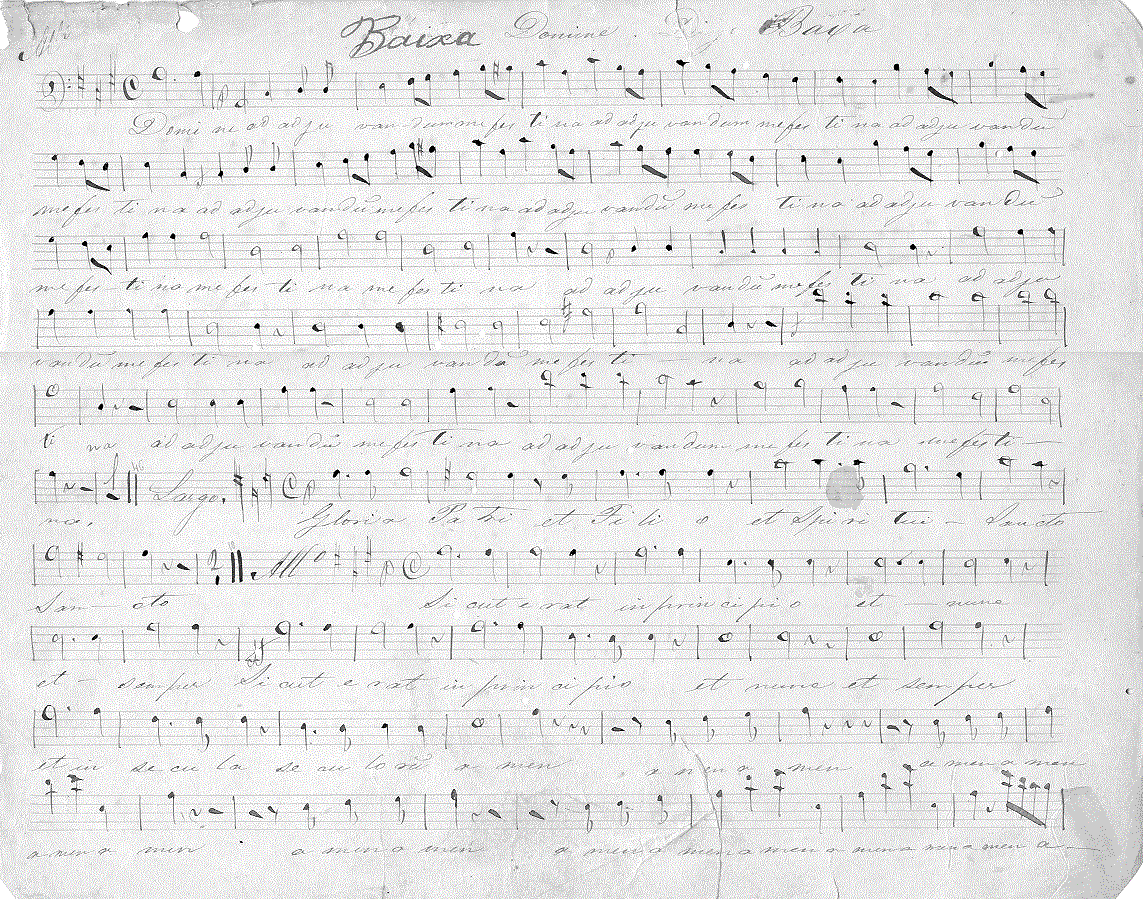 Baixa Domine. Baixa
Domi ne ad adju van dum me fes ti na ad adju van dum me fes ti na ad adju van dū
me fes ti na ad adju van dū me fes ti na ad adju van dū me fes ti na ad adju van dū
me fes ti na me fes ti na me fes ti na ad adju van dū me fes ti na ad adju
van dū me fes ti na ad adju van dū me fes ti - na ad adju van dū me fes
ti na ad adju van dū me fes ti na ad adju van dum me fes ti na me fes ti -
na. Largo. Gloria Pa tri et Fi li o et Spi ri tui - Sancto
San - cto Allo Si cut e rat in prin ci pi o et - nunc
et - semper Si cut e rat in prin ci pio et nunc et semper
et in se cu la se cu lorū a men, a men a men a men a men
a men a men a men a men a men a men a men a men a men a -